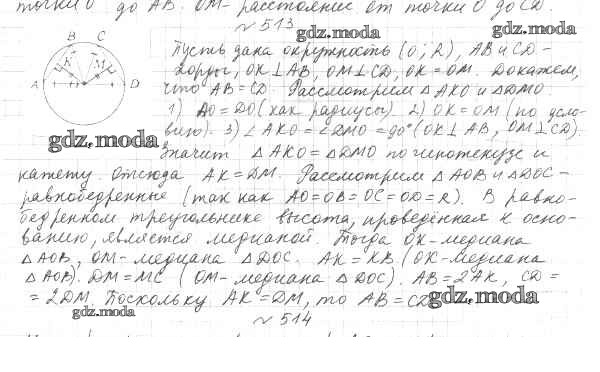 точки O до AB. OM - расстояние от точки O до CD.
№ 513
gdz.moda
gdz.moda
B C
K M
A D
Пусть дана окружность (O; R), AB и CD -
хорды, OK ⊥ AB, OM ⊥ CD, OK = OM. Докажем,
что AB = CD. Рассмотрим △AKO и △DMO:
1) AO = DO (как радиусы). 2) OK = OM (по усло-
вию). 3) ∠AKO = ∠DMO = 90° (OK ⊥ AB, OM ⊥ CD).
gdz.moda
Значит △AKO = △DMO по гипотенузе и
катету. Отсюда AK = DM. Рассмотрим △AOB и △DOC -
равнобедренные (так как AO = OB = OC = OD = R). В равно-
бедренном треугольнике высота, проведённая к осно-
ванию, является медианой. Тогда OK - медиана
△AOB, OM - медиана △DOC. AK = KB (OK - медиана
△AOB). DM = MC (OM - медиана △DOC). AB = 2AK, CD =
= 2DM. Поскольку AK = DM, то AB = CD.
gdz.moda
gdz.moda
№ 514